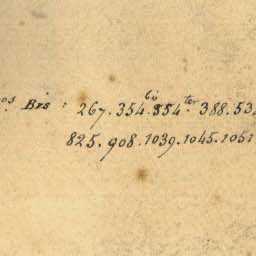 nos Bis : 267. 354 bis. 354 ter. 388. 534
825. 908. 1039. 1045. 1051